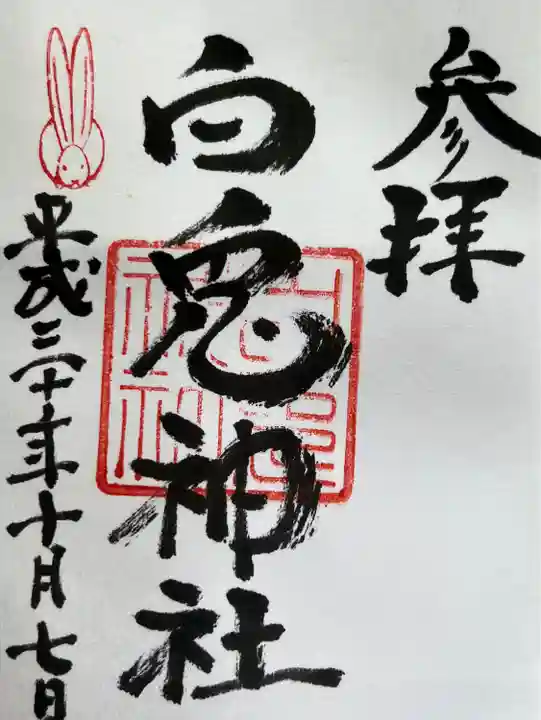 参拝
白兔神社
平成三十年十月七日